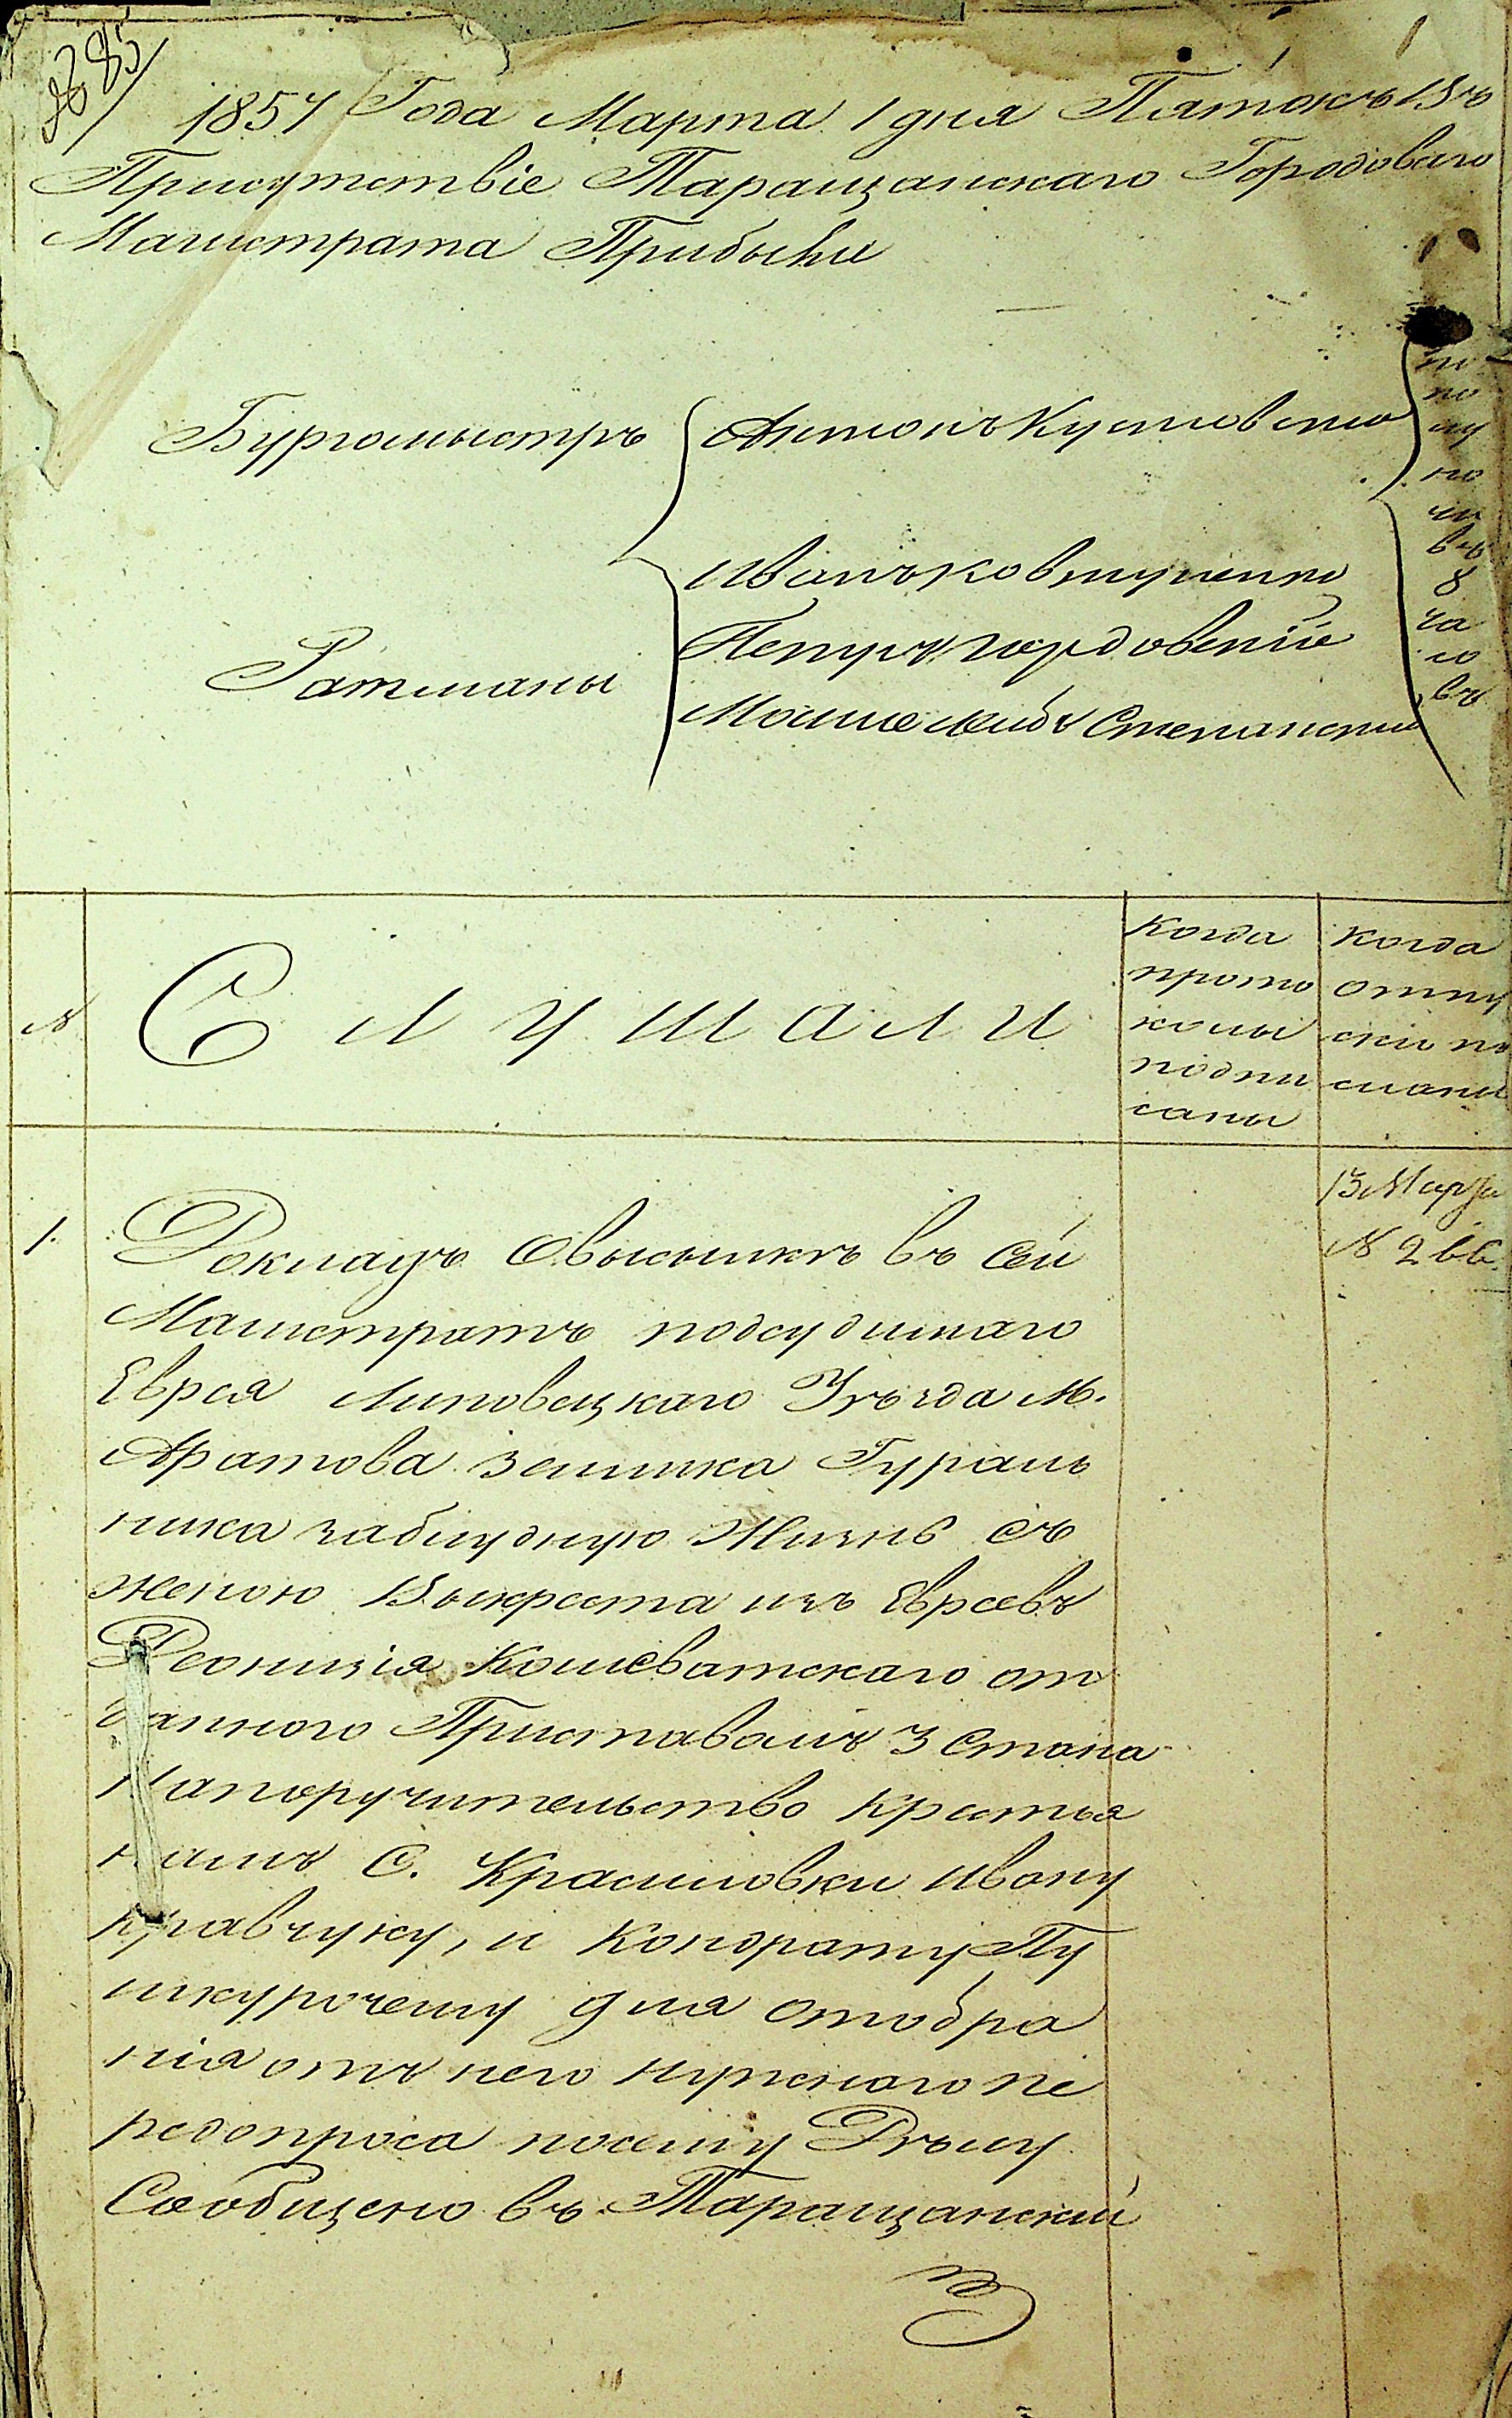 1857 Года Марта 1 дня Пятокъ Въ
Присутствіе Таращанскаго Городоваго
Магистрата Прибыли
Бургомыстръ
Антонъ Кустовскій
Иванъ Ковтуненко
Ратманы
Петръ Гордовскій
Мошко Лейбъ Степанскій
по
по
лу
но
чи
въ
8
ча
со
въ
№
Слушали
Когда
прото
колы
подпи
саны
Когда
отпу
ски по
сланы
1.
Докладъ Овысылкѣ въ Сей
Магистратъ подсудимаго
Еврея Липовецкаго Уѣзда М.
Аратова Зейлика Гураль
ника заблудную Жизнь Съ
женою Выкреста изъ Евреевъ
Деонизія Кошеватскаго от
даннаго Приставомъ 3 Стана
Напоручительство крестья
намъ С. Красиловки Ивану
Кравчуку, и Кондрату Пу
шкурочему для отобра
нія отъ него нужнаго пе
редопроса посему Дѣлу
Сообщено въ Таращанскій
13 Марта
№ 266